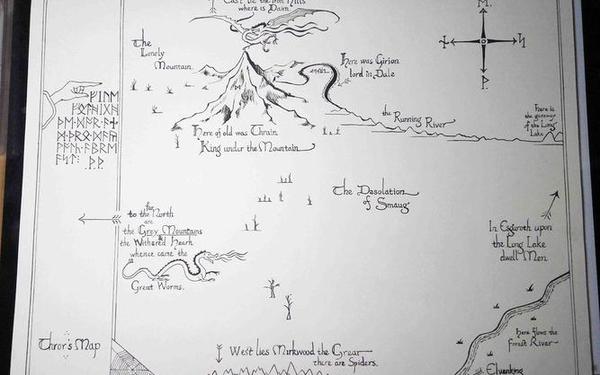 East lie the Iron Hills
where is Dain
The
Lonely
Mountain
Here was Girion
lord in Dale
ᚠᛁᚢᛖ
the Running River
Here is
of the Long
Lake
Here of old was Thrain
King under the Mountain
The Desolation
of Smaug
far
to the North
are
the Grey Mountains
&
the Withered Heath
whence came the
Great Worms.
In Esgaroth upon
the Long Lake
dwell Men.
here flows the
Forest River
Thror's Map
West lies Mirkwood the Great
there are Spiders.
Elvenking